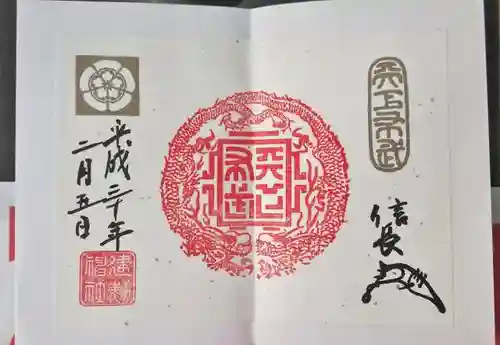 天下布武
信長
天下布武
平成三十年
二月五日
建勲
神社